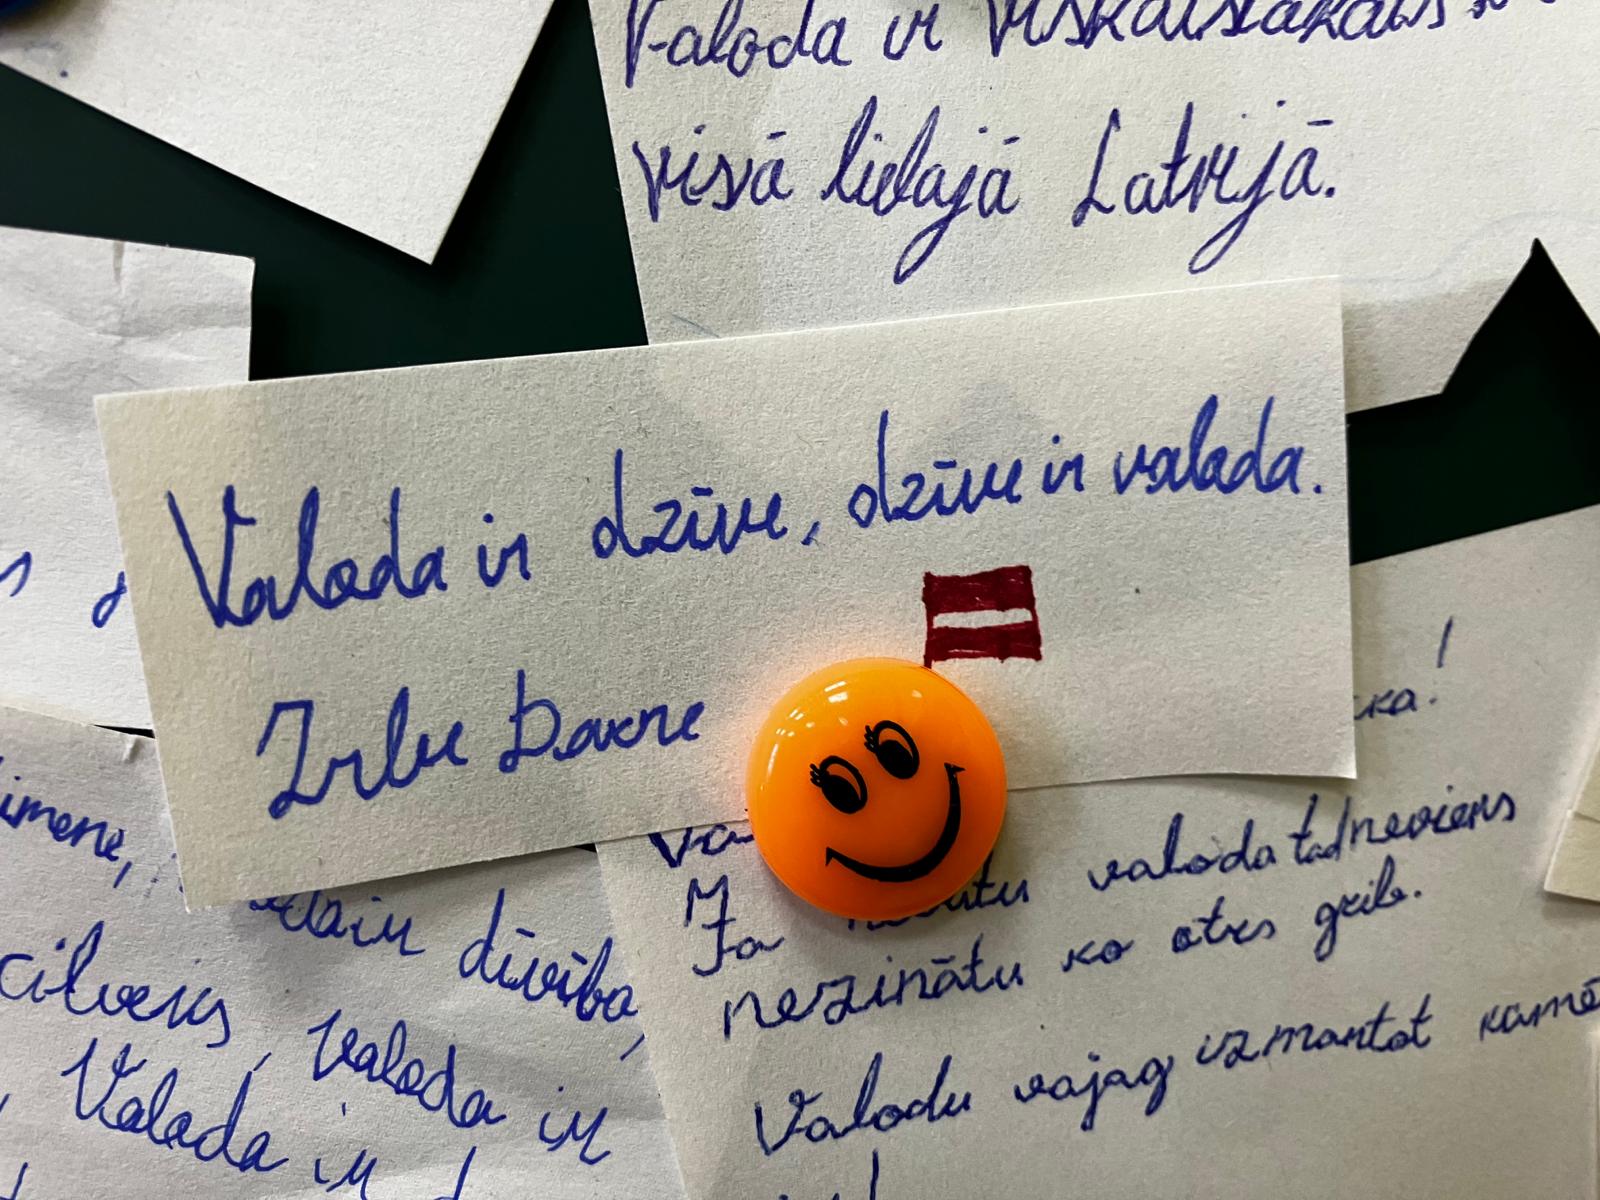 Valoda ir viskaistākais
visā lielajā Latvijā.
Valoda ir dzīve, dzīve ir valoda.
ka!
valoda tad neviens
Ja
nezinātu ko otrs grib.
Valodu vajag izmantot kamē
dīvība,
cilveks, valoda ir
Valoda ir